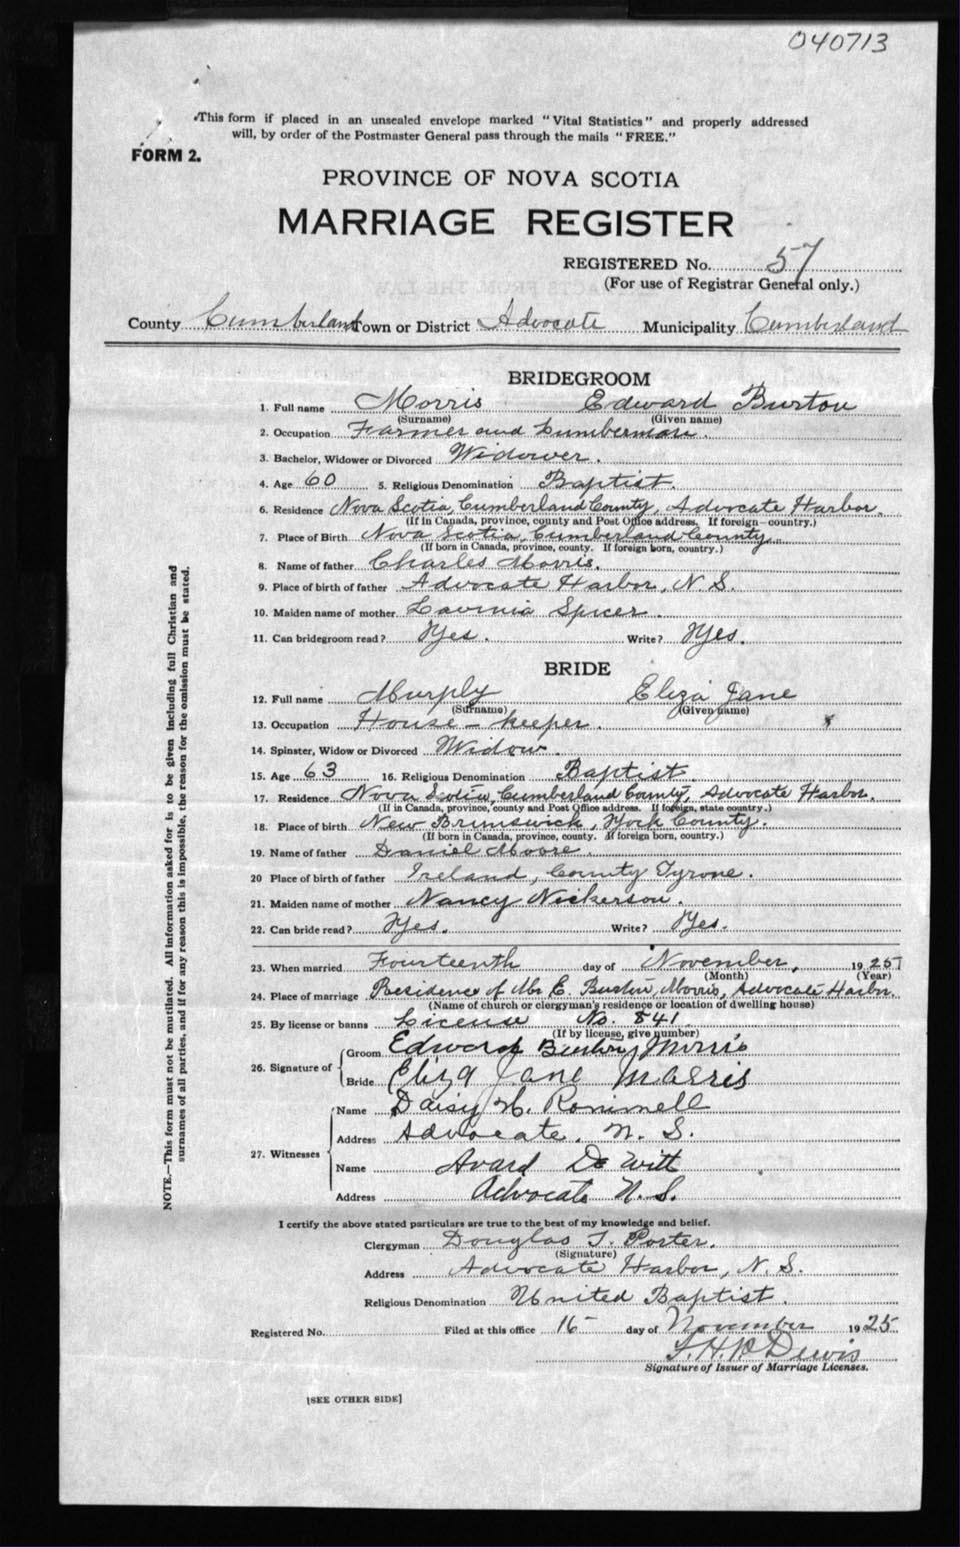 040713
This form if placed in an unsealed envelope marked "Vital Statistics" and properly addressed
will, by order of the Postmaster General pass through the mails "FREE."
FORM 2.
PROVINCE OF NOVA SCOTIA
MARRIAGE REGISTER
REGISTERED No. 57
(For use of Registrar General only.)
County Cumberland Town or District Advocate Municipality Cumberland
BRIDEGROOM
1. Full name Morris Edward Burton
(Surname) (Given name)
2. Occupation Farmer and Lumberman.
3. Bachelor, Widower or Divorced Widower.
4. Age 60 5. Religious Denomination Baptist.
6. Residence Nova Scotia, Cumberland County, Advocate Harbor.
(If in Canada, province, county and Post Office address. If foreign—country.)
7. Place of Birth Nova Scotia, Cumberland County
(If born in Canada, province, county. If foreign born, country.)
8. Name of father Charles Morris.
9. Place of birth of father Advocate Harbor, N.S.
10. Maiden name of mother Lavinia Spicer.
11. Can bridegroom read? Yes. Write? Yes.
BRIDE
12. Full name Murphy Eliza Jane
(Surname) (Given name)
13. Occupation House-keeper.
14. Spinster, Widow or Divorced Widow.
15. Age 63 16. Religious Denomination Baptist.
17. Residence Nova Scotia, Cumberland County, Advocate Harbor.
(If in Canada, province, county and Post Office address. If foreign, state country.)
18. Place of birth New Brunswick, York County.
(If born in Canada, province, county. If foreign born, country.)
19. Name of father Daniel Moore.
20 Place of birth of father Ireland, County Tyrone.
21. Maiden name of mother Nancy Nickerson.
22. Can bride read? Yes. Write? Yes.
23. When married Fourteenth day of November, 1925
(Month) (Year)
24. Place of marriage Residence of Mr E. Burton, Morris, Advocate Harbor.
(Name of church or clergyman's residence or location of dwelling house)
25. By license or banns License No. 841
(If by license, give number)
26. Signature of Groom Edward Burton Morris
Bride Eliza Jane Morris
27. Witnesses Name Daisy H. Rommell
Address Advocate, N.S.
Name Avard De Witt
Address Advocate N.S.
I certify the above stated particulars are true to the best of my knowledge and belief.
Clergyman Douglas T. Porter.
(Signature)
Address Advocate Harbor, N.S.
Religious Denomination United Baptist.
Registered No. Filed at this office 16 day of November 1925
Dewis
Signature of Issuer of Marriage Licenses.
[SEE OTHER SIDE]
NOTE.—This form must not be mutilated. All information asked for is to be given including full Christian and
surnames of all parties, and if for any reason this is impossible, the reason for the omission must be stated.